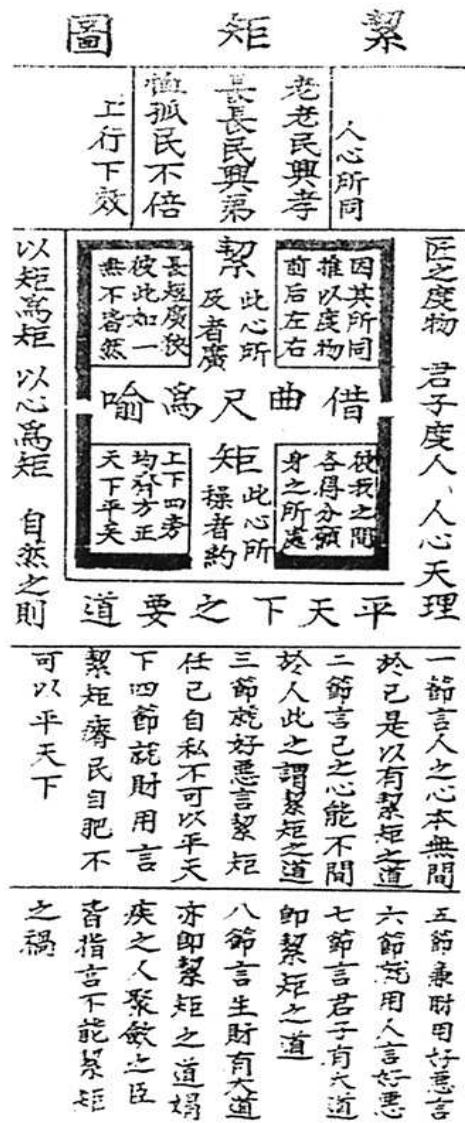 絜矩圖
人心所同
老老民興孝
長長民興弟
恤孤民不倍
上行下效
匠之度物 君子度人、人心天理
因其所同
推以度物
前后左右
絜
此心所
及者廣
長短廣狹
彼此如一
無不皆然
借曲尺爲喻
彼我之間
各得分願
身之所處
矩
此心所
操者約
上下四旁
均齊方正
天下平矣
以矩爲矩 以心爲矩 自然之則
平天下之要道
一節言人之心本無間
於己是以有絜矩之道
二節言己之心能不間
於人此之謂絜矩之道
三節就好惡言絜矩
任己自私不可以平天
下四節就財用言
絜矩瘠民自肥不
可以平天下
五節兼財用好惡言
六節就用人言好惡
七節言君子有大道
即絜矩之道
八節言生財有大道
亦即絜矩之道媢
疾之人聚斂之臣
皆指言不能絜矩
之禍